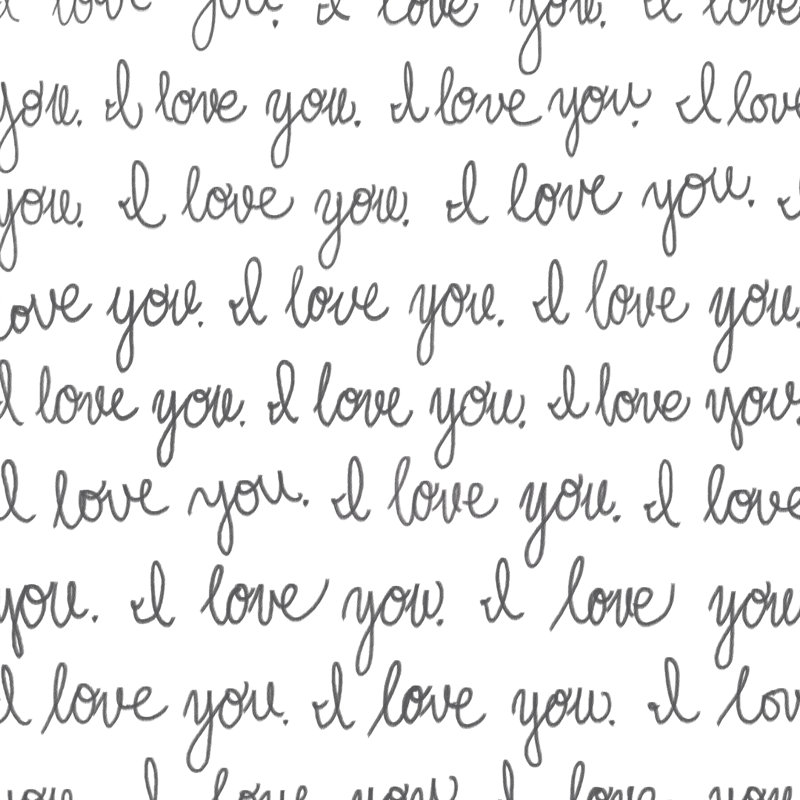 I love you. I love you. I love
you. I love you. I love you. I love
you. I love you. I love you. I
love you. I love you. I love you.
I love you. I love you. I love you.
I love you. I love you. I love
you. I love you. I love you
I love you. I love you. I lov
you. I love you I love you